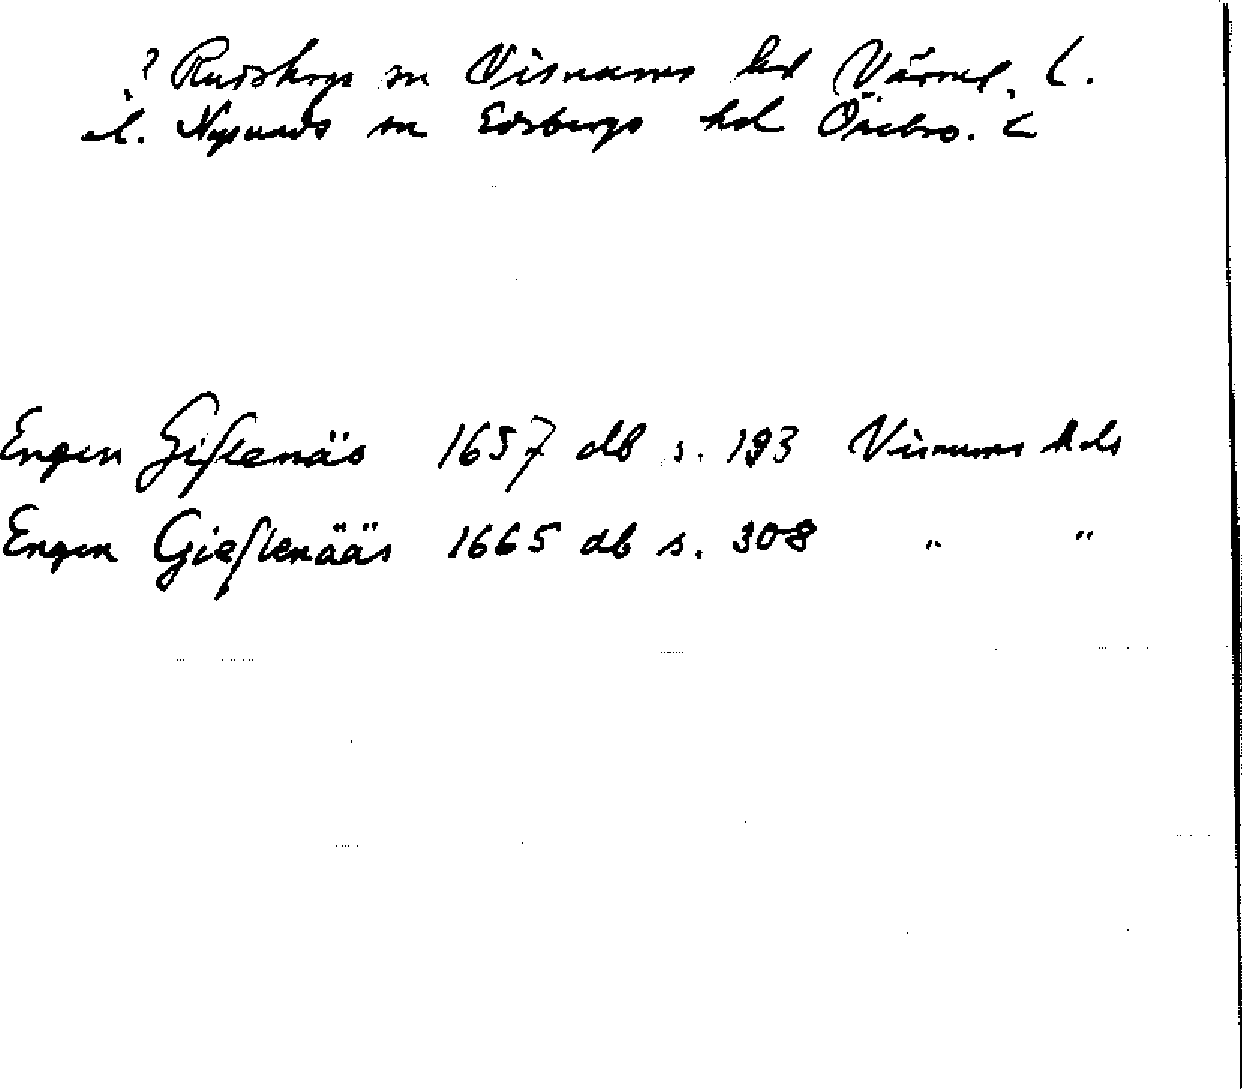 ? Rudskoga sn Visnums hd Värml. L.
el. Nysunds sn Edsbergs hd Örebro. L
Engen Gislenäs 1657 db s. 193 Visnums hds
Engen Gieslenääs 1665 db s. 308 " "